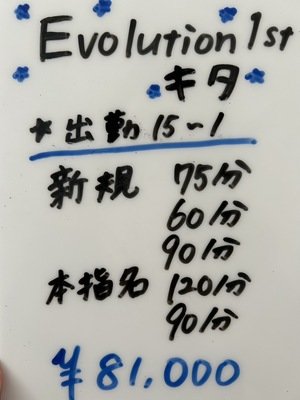 Evolution 1st
キタ
*出勤 15~1
新規 75分
60分
90分
本指名 120分
90分
¥81,000